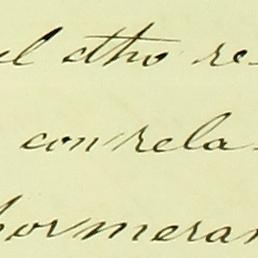 el otho re-
con rela-
por meran